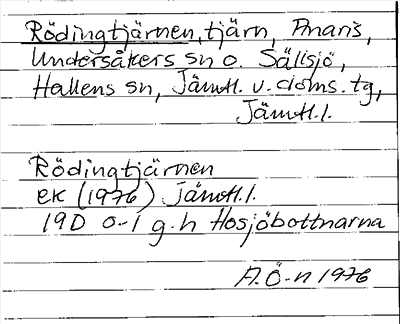 Rödingtjärnen, tjärn, Anariš,
Undersåkers sn o. Sällsjö,
Hallens sn, Jämtl. v. doms. tg,
Jämtl.l.
Rödingtjärnen
ek (1976) Jämtl.l.
19D 0-1 g-h Hosjöbottnarna
A.Ö-n 1976